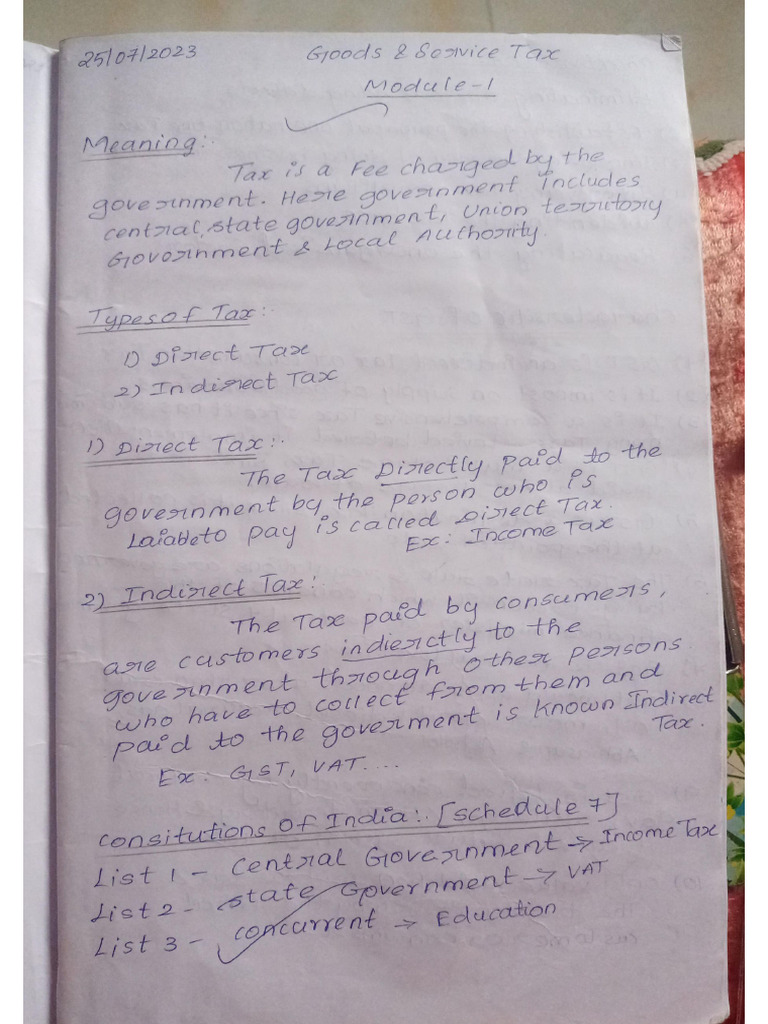 25/07/2023 Goods & Service Tax
Module-1
Meaning:-
Tax is a Fee charged by the
government. Here government includes
central, state government, Union territory
Government & Local Authority.
Types of Tax:-
1) Direct Tax
2) Indirect Tax
1) Direct Tax:-
The Tax Directly paid to the
government by the person who is
Laiable to pay is called Direct Tax.
Ex: Income Tax
2) Indirect Tax:-
The Tax paid by consumers,
are customers indierctly to the
government through other persons
who have to collect from them and
paid to the goverment is known Indirect
Tax.
Ex: GST, VAT....
Consitutions of India:- [Schedule 7]
List 1 - Central Government → Income Tax
List 2 - State Government → VAT
List 3 - concurrent → Education